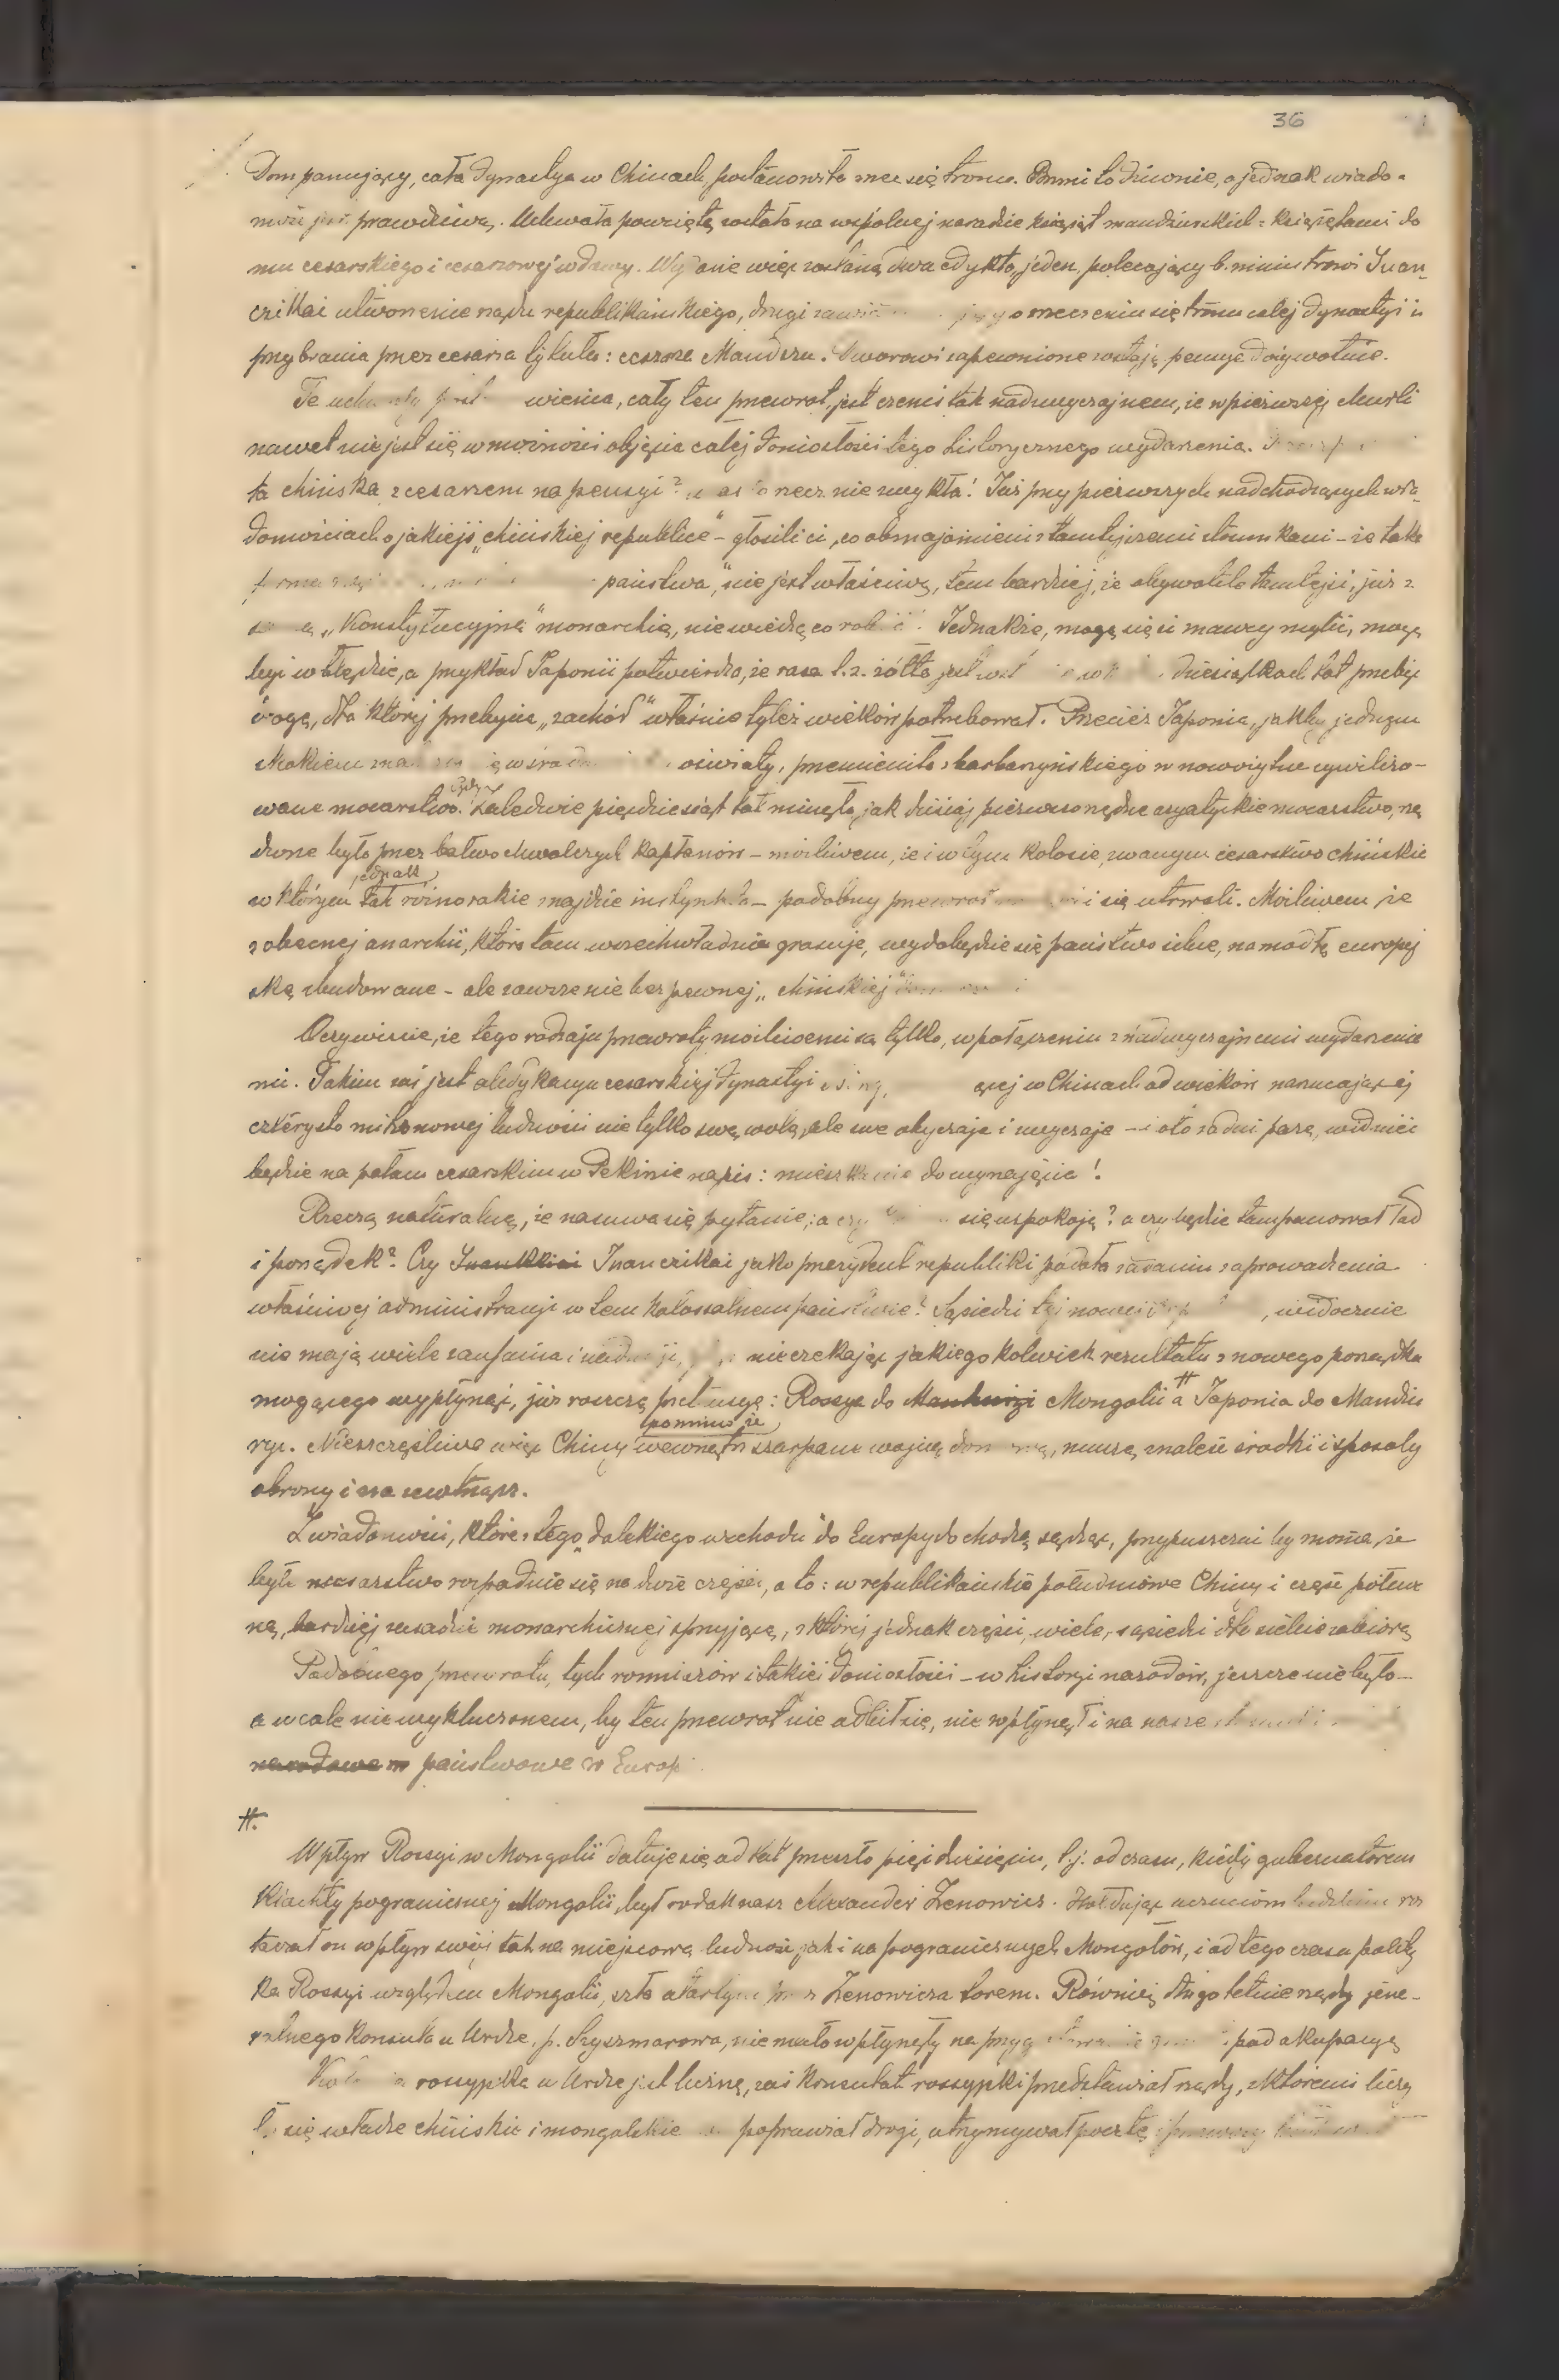 36
Dom panujący, cała dynastya w Chinach, postanowiła zrzec się tronu. Brzmi to dziwnie, a jednak wiado-
mość jest prawdziwą. Uchwała powziętą została na wspólnej naradzie książąt mandżurskich z książętami do
mu cesarskiego i cesarzowej wdowy. Wydane więc zostaną dwa edykta, jeden, polecający b. ministrowi Juan-
czikai utworzenie rządu republikańskiego, drugi o zrzeczeniu się tronu całej dynastyi i
przybrania przez cesarza tytułu: cesarza Mandżu. Dworowi zapewnione zostają pensye dożywotnie.
Te wienia, cały ten przewrot, jest czemś tak nadzwyczajnem, że w pierwszej chwili
nawet nie jest się w możności objęcia całej doniosłości tego historycznego wydarzenia.
ta chińska z cesarzem na pensyi? rzecz niezwykła! Już przy pierwszych nadchodzących wia-
domościach o jakiejś „chińskiej republice" – głosili ci, co obznajomieni z tamtejszemi stosunkami – że taka
państwa," nie jest właściwą, tem bardziej, że obywatele tamtejsi, już z
„Konstytucyjną" monarchią, nie wiedzą co robić. Jednakże, mogą się ci znawcy mylić, mogą
być w błędzie, a przykład Japonii potwierdza, że rasa t. z. żółta jest dziesiątkach lat przebyć
drogę, dla której przebycia „zachód" właśnie tyleż wieków potrzebował. Przecież Japonia, jakby jednym
skokiem oświaty, przemieniła z barbarzyńskiego w nowożytne cywilizo-
wane mocarstwo. Zaledwie pięćdziesiąt lat minęło, jak dzisiaj pierwszorzędne azyatyckie mocarstwo, rzą
dzone było przez bałwochwalczych kapłanów – możliwem, że i w tym kolosie, zwanym cesarstwo chińskie
jednak
w którym tak różnorakie znajdzie instynkta – podobny przewrot i się utrwali. Możliwem że
z obecnej anarchii, która tam wszechwładnie grasuje, wydobędzie się państwo silne, na modłę europej
ską zbudowane – ale zawsze nie bez pewnej „chińskiej"
Oczywiście, że tego rodzaju przewroty możliwemi są tylko, w połączeniu z nadzwyczajnemi wydarzenia
mi. Takim zaś jest abdykacya cesarskiej dynastyi w Chinach od wieków narzucającej
czterysto milionowej ludności nie tylko swą wolę, ale swe obyczaje i zwyczaje – i oto za dni parę, widnieć
będzie na pałacu cesarskim w Pekinie napis: mieszkanie do wynajęcia!
Rzeczą naturalną, że nasuwa się pytanie; a czy się uspokoją? a czy będzie tam panował ład
i porządek? Czy Juankkiai Juanczikai jako prezydent republiki podoła zadaniu zaprowadzenia
właściwej administracji w tem kolosalnem państwie? Sąsiedzi tej nowej , widocznie
nie mają wiele zaufania i nie czekając jakiegokolwiek rezultatu z nowego porządku
mogącego wypłynąć, już roszczą pretensyę: Rossya do Mandżuryi Mongolii # a Japonia do Mandżu
pomimo że
ryi. Nieszczęśliwe więc Chiny wewnątrz szarpane wojną domową, muszą znaleść środki i sposoby
obrony i na zewnątrz.
Z wiadomości, które z tego „dalekiego wschodu" do Europy dochodzą sądząc, przypuszczać by można, że
byłe mocarstwo rozpadnie się na dwie części, a to: w republikańskie południowe Chiny i część północ
ną, bardziej zasadzie monarchicznej sprzyjającą, z której jednak części, wiele, sąsiedzi dla siebie zabiorą
Podobnego przewrotu, tych rozmiarów i takiej doniosłości – w historyi narodów, jeszcze nie było –
a wcale nie wykluczonem, by ten przewrot nie odbił się, nie wpłynął i na nasze
narodowe państwowe w Europ
#.
Wpływ Rossyi w Mongolii datuje się od lat przeszło pięćdziesięciu, t.j. od czasu, kiedy gubernatorem
Kiachty pogranicznej Mongolii, był rodak nasz Alexander Zenowicz. Hołdując uczuciom ludzkim roz
taczał on wpływ swój tak na miejscową ludność jak i na pogranicznych Mongołów, i od tego czasu polity
ka Rossyi względem Mongolii, szła utartym przez Zenowicza torem. Również długoletnie rządy jene-
ralnego konsula w Urdze, p. Szyszmarowa, nie mało wpłynęły na pod okupacyę
rossyjska w Urdze jest liczną, zaś konsulat rossyjski przedstawiał rządy, z któremi liczy
ły się władze chińskie i mongolskie poprawiał drogi, utrzymywał pocztę